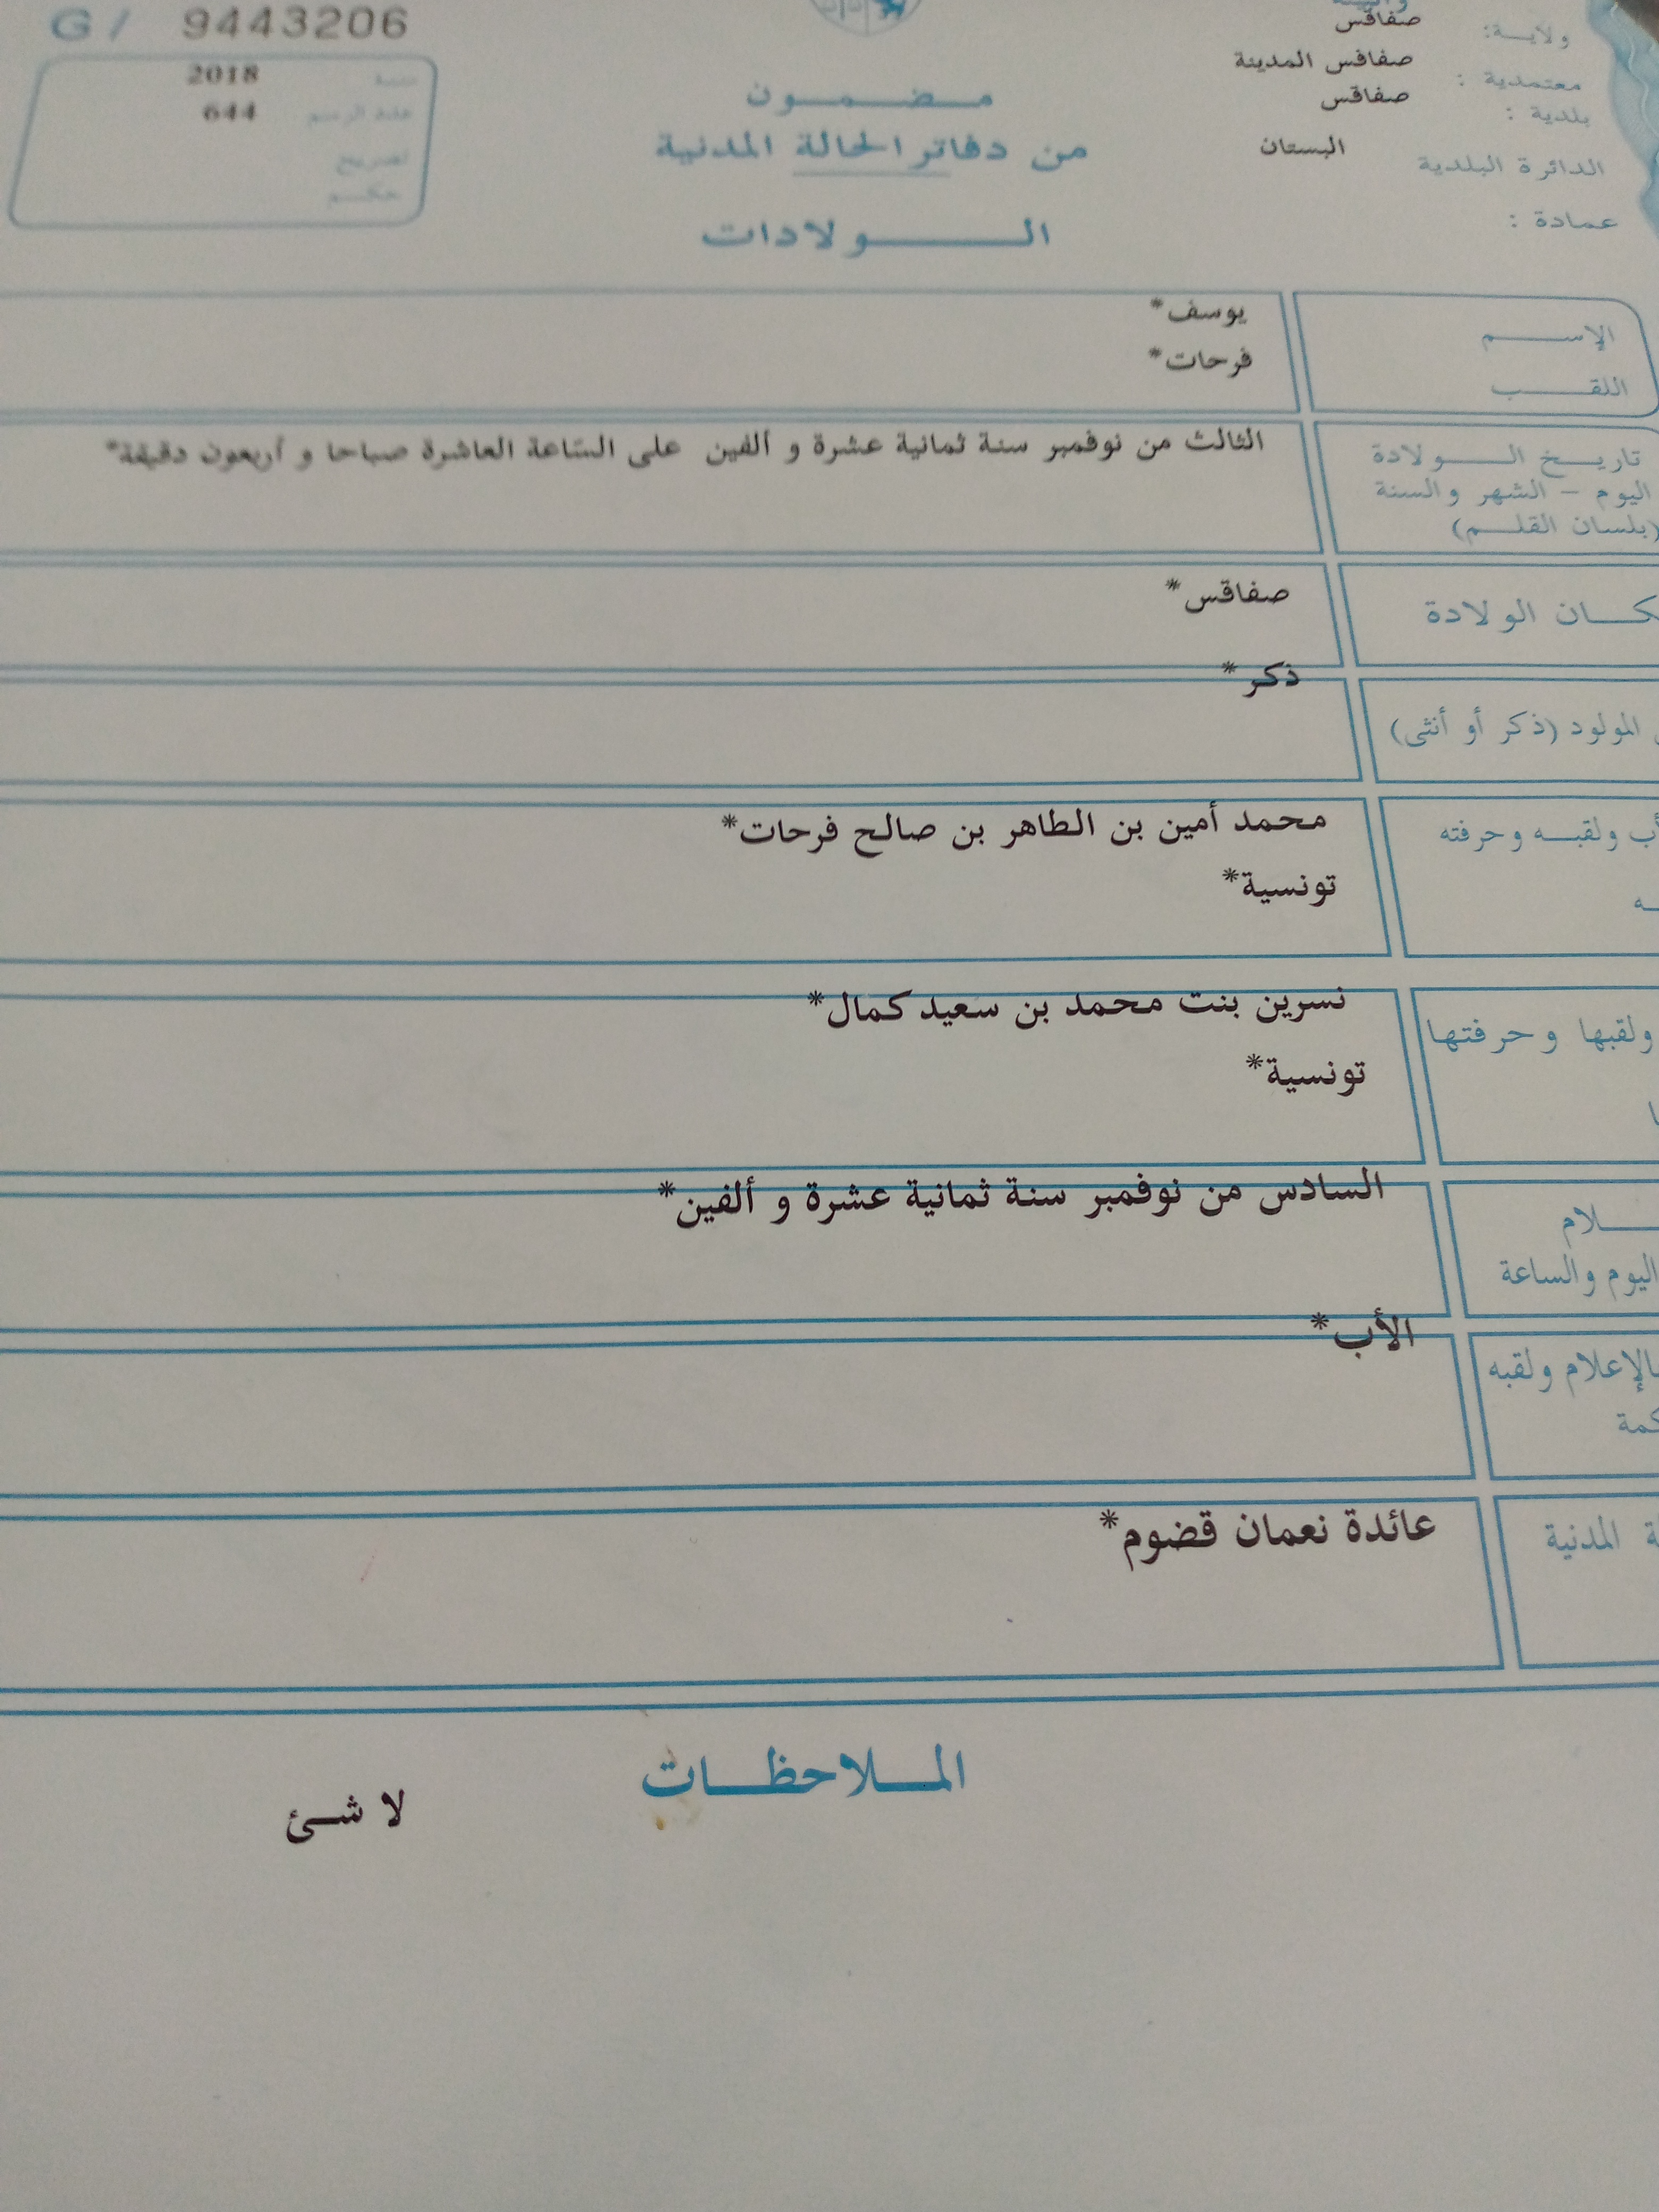 G / 9443206
ولاية: صفاقس
معتمدية : صفاقس المدينة
بلدية : صفاقس
الدائرة البلدية البستان
عمادة :
سنة 2018
عدد الرسم 644
تصريح
حكم
مضمون
من دفاتر الحالة المدنية
الولادات
الإسم يوسف*
اللقب فرحات*
تاريخ الولادة الثالث من نوفمبر سنة ثمانية عشرة و ألفين على السّاعة العاشرة صباحا و أربعون دقيقة*
اليوم – الشهر والسنة
(بلسان القلم)
كان الولادة صفاقس*
ذكر*
المولود (ذكر أو أنثى)
ولقبه وحرفته محمد أمين بن الطاهر بن صالح فرحات*
تونسية*
نسرين بنت محمد بن سعيد كمال*
ولقبها وحرفتها
تونسية*
السادس من نوفمبر سنة ثمانية عشرة و ألفين*
لام
اليوم والساعة
الأب*
بالإعلام ولقبه
كمة
المدنية عائدة نعمان قضوم*
الملاحظات
لا شئ